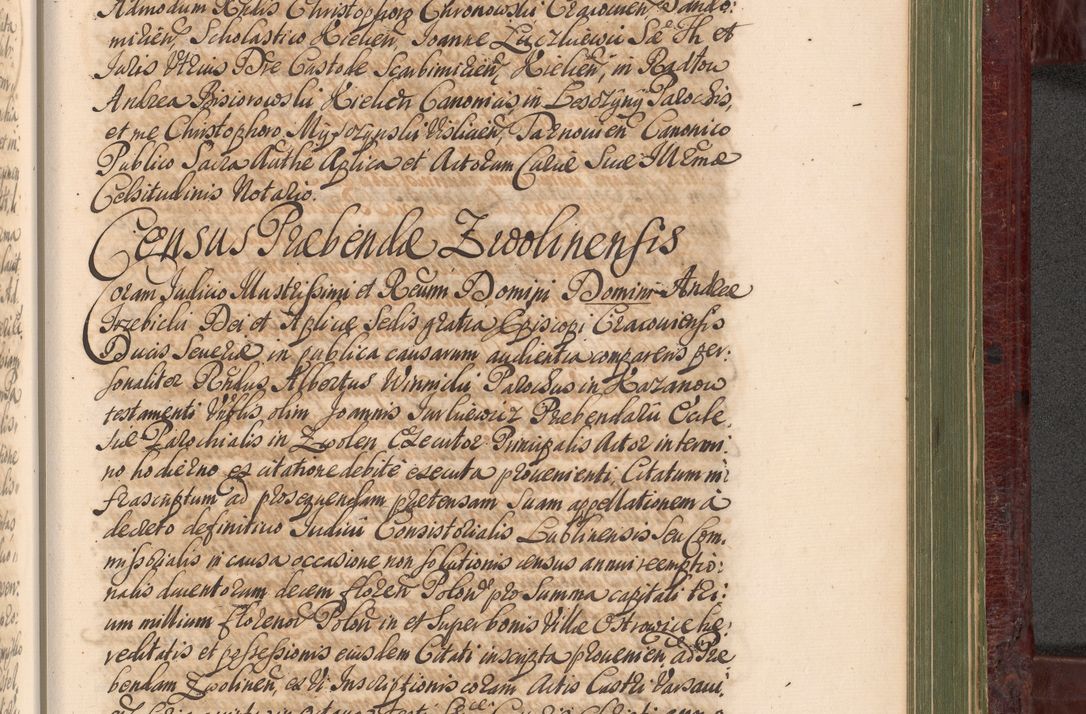 Admodum Rndis Christophoro Chronowski Cracouien Sando:
mirien, Scholastico Kielien, Joanne Luczkiewicz SSae Th et
Juris Vtrius Dre Custode Scarbimirien, Kielien, in Radłow
Andrea Pisiorowski Kielicen Canonicis, in Lesczyny Parochis,
et me Christophoro Myszynski Visliaen, Tarnouien Canonico
Publico Sacra Authe Aplica et Actorum Curiæ Suæ Illrmæ
Celsitudinis Notario.
Census Præbendæ Zwolinensis
Coram Judicio Illustrissimi et Reumi Domini Domini Andreæ
Trzebicki Dei et Aplicæ Sedis gratia Episcopi Cracouiensis
Ducis Seueriæ in publica causarum audientia comparens per:
sonaliter Rndus Albertus Winnicki Parochus in Kazanow
testamenti Vltis olim Joannis Jurkiewicz Præbendarii Eccle
siæ Parochialis in Zwolen Executor Principalis Actor in termi
no hodierno ex citatione debite executa proueniente, Citatum in
frascriptum ad prosequendam prætensam suam appellationem à
decreto definitiuo Judicii Consistorialis Lublinensis seu Com,
missorialis in causa occasione non solutionis census annui reemptio:
nalis ducentorum decem floren Polon pro Summa capitali tri:
um millium Florenor Polon in et super bonis Villæ Ostrowice hæ:
reditatis et possessionis eiusdem Citati inscripta prouenien, ad Præ
bendam Zwolinen, ex Vi Inscriptionis coram Actis Castri Varsaui,